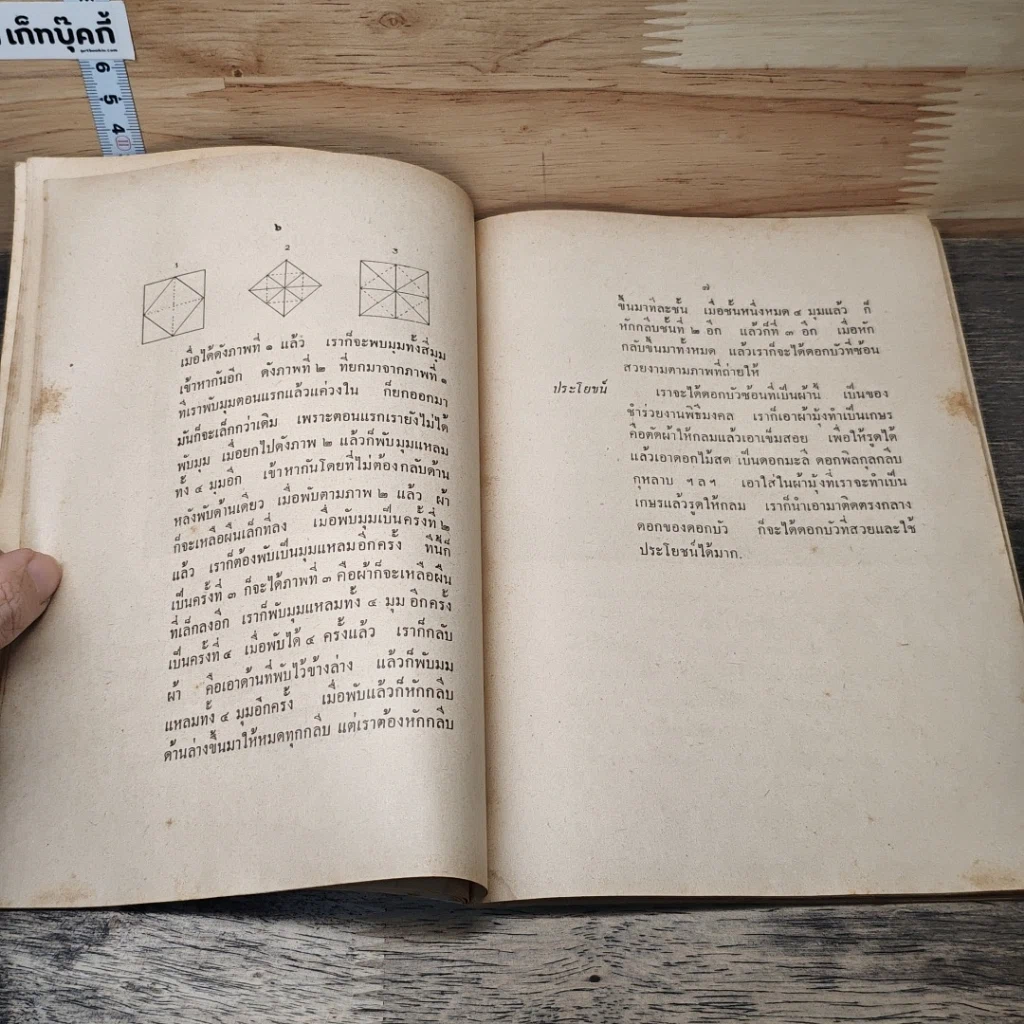 เก็ทบุ๊คกี้
6
5
4
๖
1
2
3
เมื่อได้ดังภาพที่ ๑ แล้ว เราก็จะพบมุมทั้งสี่มุม
เข้าหากันอีก ดังภาพที่ ๒ ที่ยกมาจากภาพที่ ๑
ที่เราพับมุมตอนแรกแล้วแค่วงใน ก็ยกออกมา
มันก็จะเล็กกว่าเดิม เพราะตอนแรกเรายังไม่ได้
พับมุม เมื่อยกไปดังภาพ ๒ แล้วก็พับมุมแหลม
ทั้ง ๔ มุมอีก เข้าหากันโดยที่ไม่ต้องกลับด้าน
หลังพับด้านเดียว เมื่อพับตามภาพ ๒ แล้ว ผ้า
ก็จะเหลือผืนเล็กที่ลง เมื่อพับมุมเป็นครั้งที่ ๒
แล้ว เราก็ต้องพับเป็นมุมแหลมอีกครั้ง ทีนี้ก็
เป็นครั้งที่ ๓ ก็จะได้ภาพที่ ๓ คือผ้าก็จะเหลือผืน
ที่เล็กลงอีก เราก็พับมุมแหลมทั้ง ๔ มุม อีกครั้ง
เป็นครั้งที่ ๔ เมื่อพับได้ ๔ ครั้งแล้ว เราก็กลับ
ผ้า คือเอาด้านที่พับไว้ข้างล่าง แล้วก็พับมม
แหลมทั้ง ๔ มุมอีกครั้ง เมื่อพับแล้วก็หักกลีบ
ด้านล่างขึ้นมาให้หมดทุกกลีบ แต่เราต้องหักกลีบ
๗
ขึ้นมาที่ละชั้น เมื่อชั้นหนึ่งหมด ๔ มุมแล้ว ก็
หักกลีบชั้นที่ ๒ อีก แล้วก็ที่ ๓ อีก เมื่อหัก
กลับขึ้นมาทั้งหมด แล้วเราก็จะได้ดอกบัวที่ซ้อน
สวยงามตามภาพที่ถ่ายให้
ประโยชน์ เราจะได้ดอกบัวซ้อนที่เป็นผ้านี้ เป็นของ
ชำร่วยงานพิธีมงคล เราก็เอาผ้ามุ้งทำเป็นเกษร
คือตัดผ้าให้กลมแล้วเอาเข็มสอย เพื่อให้รูดได้
แล้วเอาดอกไม้สด เป็นดอกมะลิ ดอกพิลกุลกลีบ
กุหลาบ ฯลฯ เอาใส่ในผ้ามุ้งที่เราจะทำเป็น
เกษรแล้วรูดให้กลม เราก็นำเอามาติดตรงกลาง
ดอกของดอกบัว ก็จะได้ดอกบัวที่สวยและใช้
ประโยชน์ได้มาก.